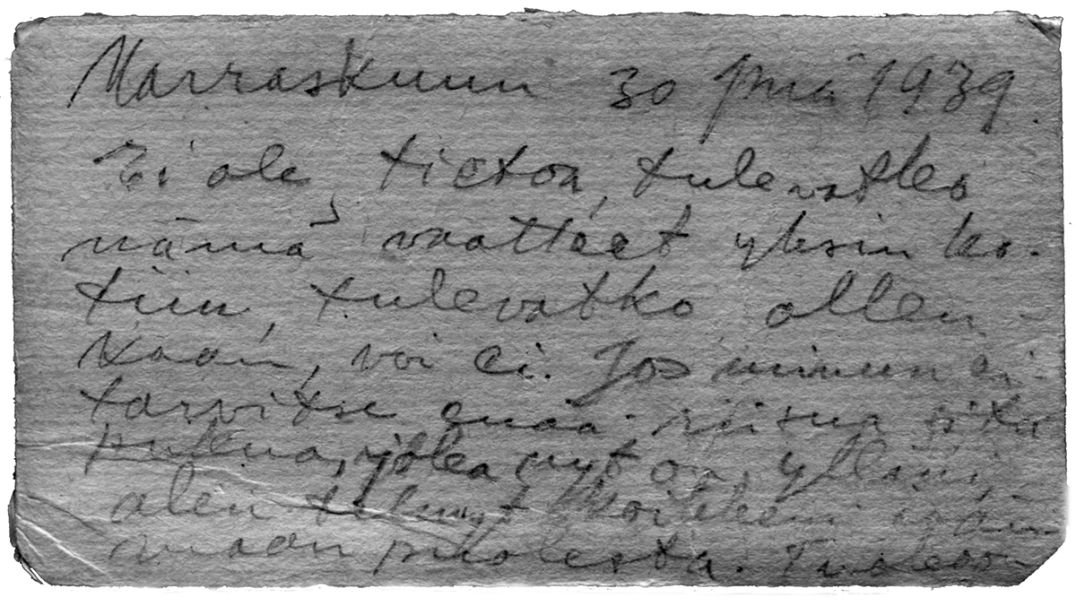 Marraskuun 30 pnä 1939.
Ei ole, tietoa, tulevatko
nämä vaatteet yksin ko-
tiin, tulevatko ollen-
kaan, voi ei. Jos minun ei
tarvitse enää riisua sitä
pukua, joka nyt on, ylläni,
olen tehnyt kaikkeni isän-
maan puolesta.